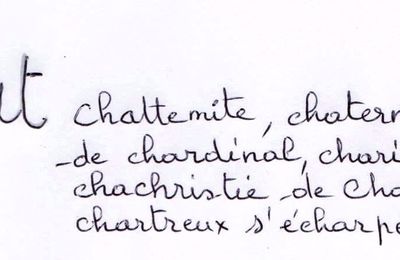 chattemite, chater
de chardinal, chari
chachristie de Cha
chartreux s'écharpe